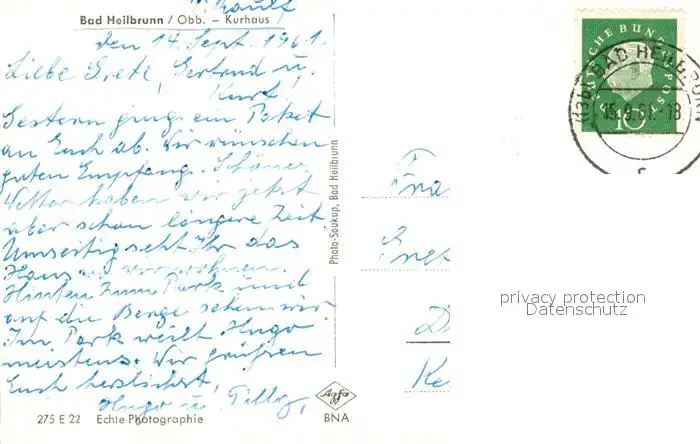 Bad Heilbrunn / Obb. – Kurhaus
den 14. Sept. 1961.
Liebe Grete, Gertrud u.
Kurt!
Gestern ging ein Paket
an Euch ab. Wir wünschen
guten Empfang. Schönes
Wetter haben wir jetzt
aber schon längere Zeit
Umseitig seht Ihr das
Haus wo wir wohnen.
Hinten zum Park und
auf die Berge sehen wir.
Im Park weilt Hugo
meistens. Wir grüssen
Euch herzlichst,
Hugo u. Tilly,
275 E 22 Echte Photographie
Photo-Soukup, Bad Heilbrunn
Agfa
BNA
DEUTSCHE BUNDESPOST
10
BAD HEILBRUNN
15.9.61.-18
c
Fra
Gret
D
Ke
privacy protection
Datenschutz